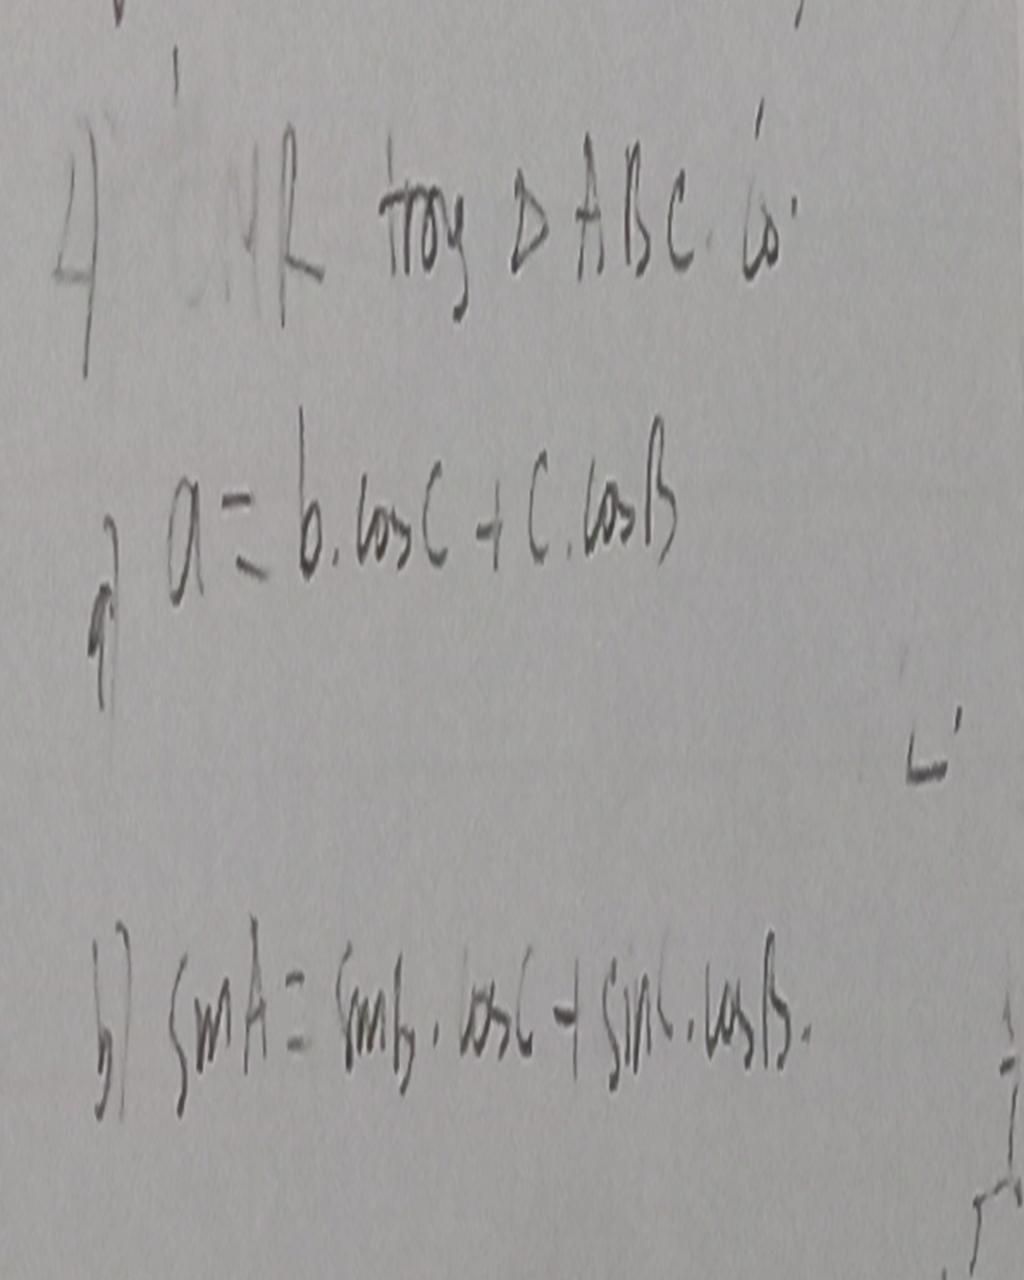 4) CMR trog Δ ABC có:
a) a = b.cosC + c.cosB
b) sinA = sinB.cosC + sinC.cosB.